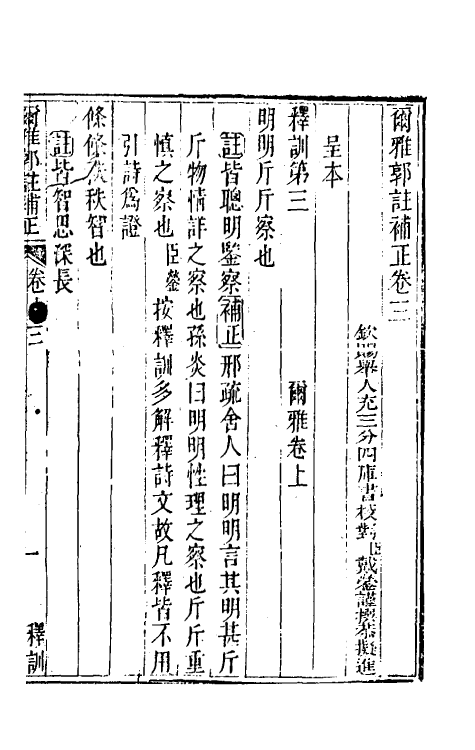 爾雅郭註補正卷三
欽賜舉人充三分四庫書校對臣戴鎣謹撰恭擬進
呈本
釋訓第三　爾雅卷上
明明斤斤察也
註皆聰明鑒察補正邢疏舍人曰明明言其明甚斤
斤物情詳之察也孫炎曰明明性理之察也斤斤重
慎之察也臣鎣按釋訓多解釋詩文故凡釋皆不用
引詩爲證
條條秩秩智也
註皆智思深長
爾雅郭註補正　卷三　一　釋訓